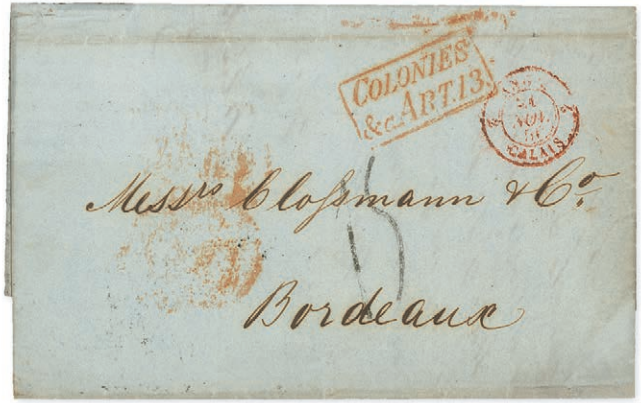 COLONIES
&c. ART. 13.
ANGL.
2 24 2
NOV.
CALAIS
Messrs Clossmann & Co.
15
Bordeaux